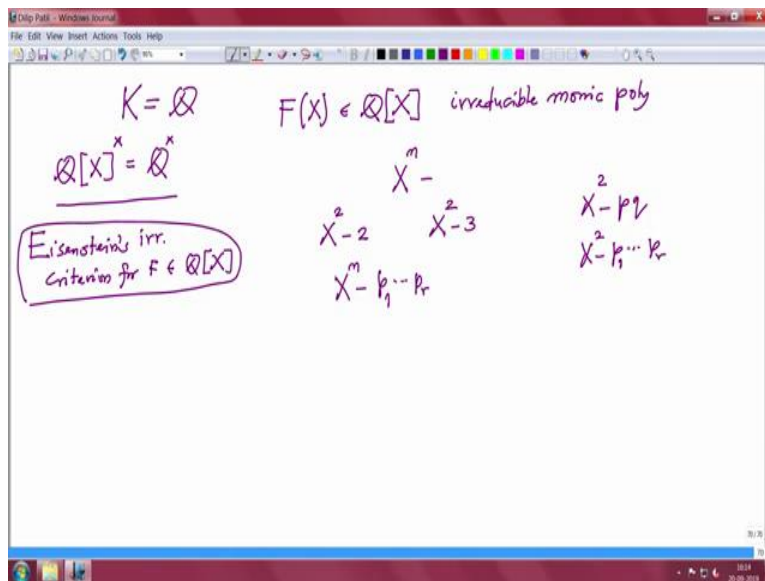 Dilip Patil - Windows Journal
File Edit View Insert Actions Tools Help
K = ℚ F(X) ∈ ℚ[X] irreducible monic poly
ℚ[X]^× = ℚ^×
X^m -
X^2 - 2 X^2 - 3 X^2 - pq
Eisenstein's irr.
criterion for F ∈ ℚ[X]
X^m - p_1 ... p_r X^2 - p_1 ... p_r
70/70
70